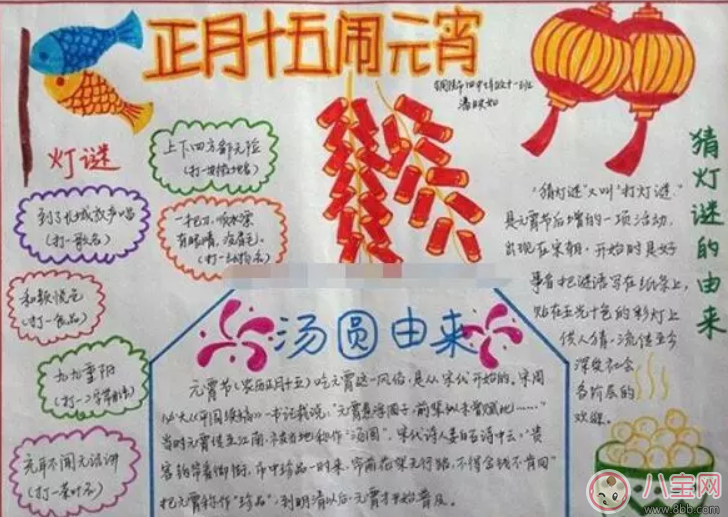 正月十五闹元宵
灯谜
上下四方都无险
(打一世界地名)
到了长城放声唱
(打一歌名)
一把刀,顺水漂
有眼睛,没眉毛。
(打一动物名)
和颜悦色
(打一食品)
九九重阳
(打一
元年不闻无话讲
(打一茶叶名)
猜灯谜的由来
"猜灯谜"又叫"打灯谜"
是元宵节后增的一项活动,
出现在宋朝。开始时是好
事者把谜语写在纸条上,
贴在五光十色的彩灯上
供人猜。流传至今
深受社会
各阶层的
欢迎。
汤圆由来
元宵节(农历正月十五)吃元宵这一风俗,是从宋代开始的。宋周
必大《平园续稿》一书记载说:"元宵煮浮圆子,前辈似未曾赋此……"
当时元宵传至江南,被当地称作"汤圆"。宋代诗人姜白石诗中云:"贵
客钩帘看御街,市中珍品一时来,帘前花架无行路,不得金钱不肯回"
把元宵称作"珍品",到明清以后,元宵才开始普及。
八宝网
www.8bb.com